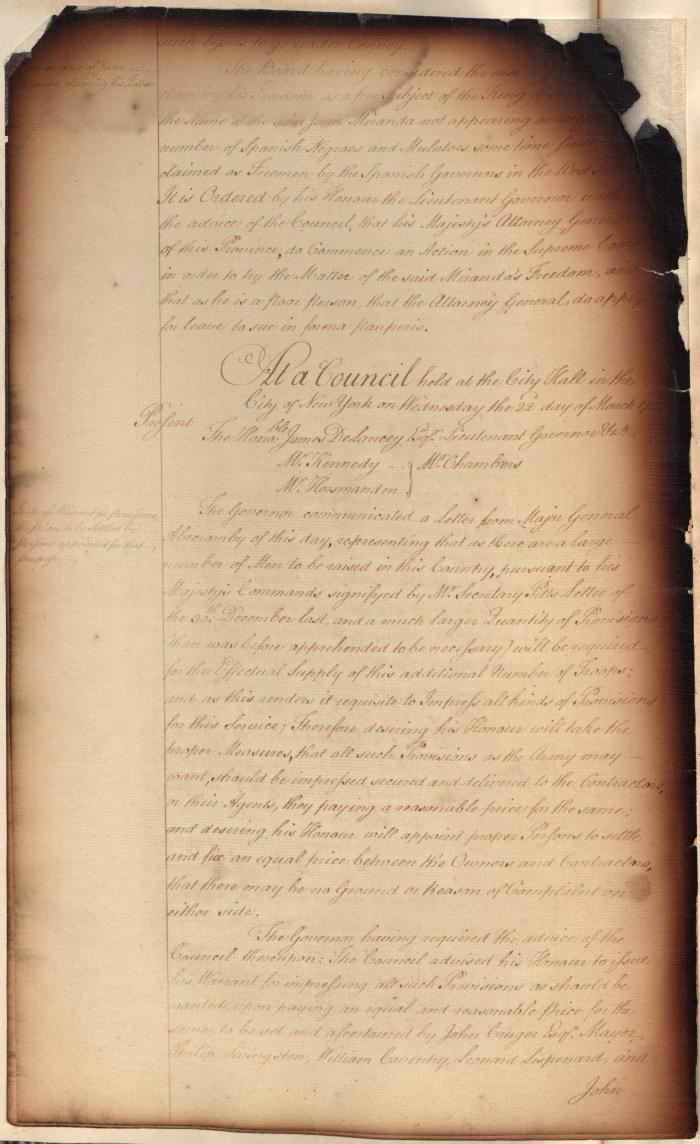 such Escorts to go under Convoy.
The Board having considered the case
claiming his Freedom as a free Subject of the King of
the Name of the said Juan Miranda not appearing among
number of Spanish Negroes and Mulatoes some time since
claimed as Freemen by the Spanish Governors in the West
It is Ordered by his Honour the Lieutenant Governor with
the advice of the Council, that his Majesty's Attorney General
of this Province, do Commence an Action in the Supreme Court
in order to try the Matter of the said Miranda's Freedom, and
that as he is a poor Person, that the Attorney General, do apply
for leave to sue in forma Pauperis.
At a Council held at the City Hall in the
City of New York on Wednesday the 22d day of March
Present
The Honoble James DeLancey Esqr. Lieutenant Governor &ca.
Mr. Kennedy } Mr. Chambers
Mr. Horsmanden
Warrant for Provisions,
the prices to be settled by
Persons appointed for that
purpose.
The Governor communicated a Letter from Major General
Abercromby of this day, representing that as there are a large
number of Men to be raised in this Country, pursuant to his
Majesty's Commands signifyed by Mr. Secretary Pitts Letter of
the 30th December last, and a much larger Quantity of Provisions
than was before apprehended to be necessary) will be required
for the Effectual Supply of this additional Number of Troops;
and as this renders it requisite to Impress all kinds of Provisions
for this Service; Therefore desiring his Honour will take the
proper Measures, that all such Provisions as the Army may
want, should be impressed secured and delivered to the Contractors,
or their Agents, they paying a reasonable price for the same;
and desiring his Honour will appoint proper Persons to settle
and fix an equal price between the Owners and Contractors,
that there may be no Ground or Reason of Complaint on
either side.
The Governor having required the advice of the
Council thereupon: The Council advised his Honour to issue
his Warrant for impressing all such Provisions as should be
wanted, upon paying an equal and reasonable Price for the
same, to be set and ascertained by John Cruger Esqr. Mayor
Philip Livingston, William Coventry, Leonard Lispenard, and
John